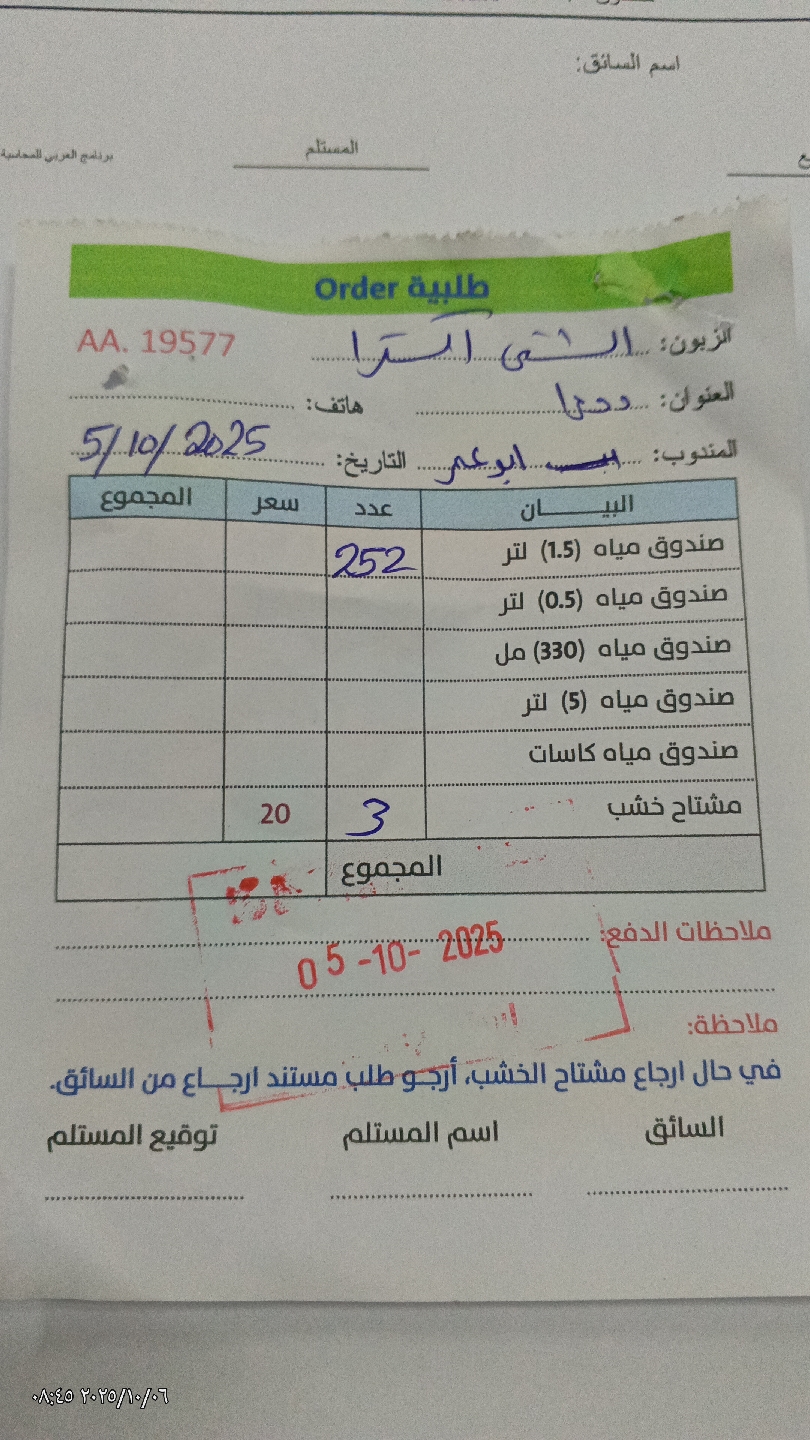 اسم السائق:
المستلم
برنامج العربي للمحاسبة
طلبية Order
AA. 19577
الزبون: الشني اكسترا
العنوان:
هاتف:
المندوب: ابو عمر
التاريخ: 5/10/2025
البيـــــــان عدد سعر المجموع
صندوق مياه (1.5) لتر 252
صندوق مياه (0.5) لتر
صندوق مياه (330) مل
صندوق مياه (5) لتر
صندوق مياه كاسات
مشتاح خشب 3 20
المجموع
ملاحظات الدفع:
05-10-2025
ملاحظة:
في حال ارجاع مشتاح الخشب، أرجـو طلب مستند ارجـــاع من السائق.
السائق اسم المستلم توقيع المستلم
٠٨:٤٥ ٢٠٢٥/١٠/٠٦